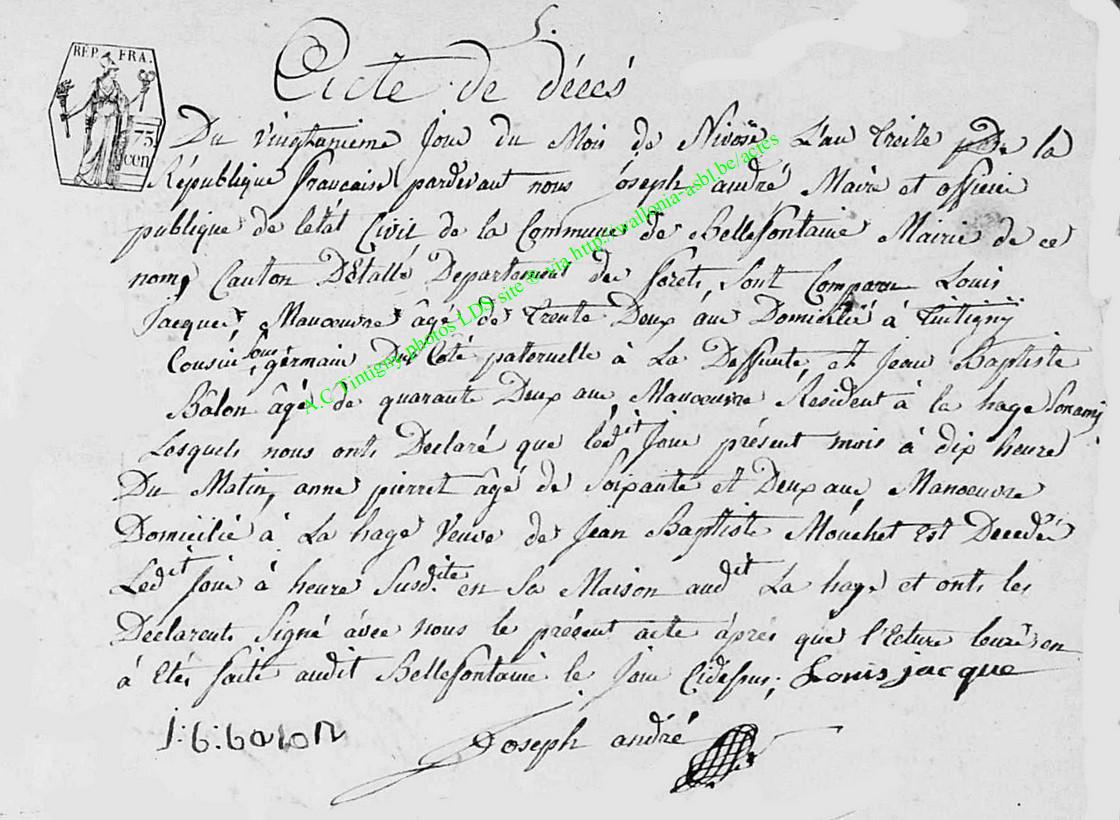 5.
Acte de décés
REP. FRA.
75
cen
Du vingtunieme Jour du Mois de Nivose L'an treize de la
République francaise pardevant nous joseph andré Maire et officier
publique de letat Civil de la Commune de Bellefontaine Mairie de ce
nom, Canton D'Etalle Departement des forets, sont Comparu Louis
Jacque, Manoeuvre âgé de trente Deux ans Domicilié à tintigny
Cousin sous germain du Coté paternelle à La Deffunte, et Jean Baptiste
Bâlon âgé de quarante Deux ans Manoeuvre Resident à la hage
Lesquels nous onts Declaré que ledit Jour présent mois à dix heure
Du Matin, anne pierret agé de Soixante et Deux ans, Manoeuvre
Domicilié à La hage Veuve de Jean Baptiste Mouchet Est Decedée
Ledit Jour à heure Susdite en Sa Maison audit La haye et onts les
Declarents Signé àvec Nous le présent acte àprés que l'Ecture en
à Etés faite audit Bellefontaine le Jour Cidessus; Louis jacque
J:b:balon Joseph andré
A.C Tintigny photos LDS, site © via http://wallonia-asbl.be/actes